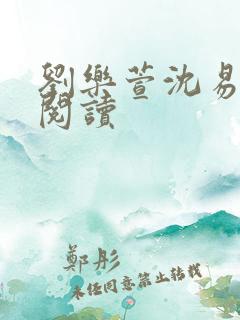 劉樂萱沈易
閱讀
鄭彤
未經同意禁止轉載